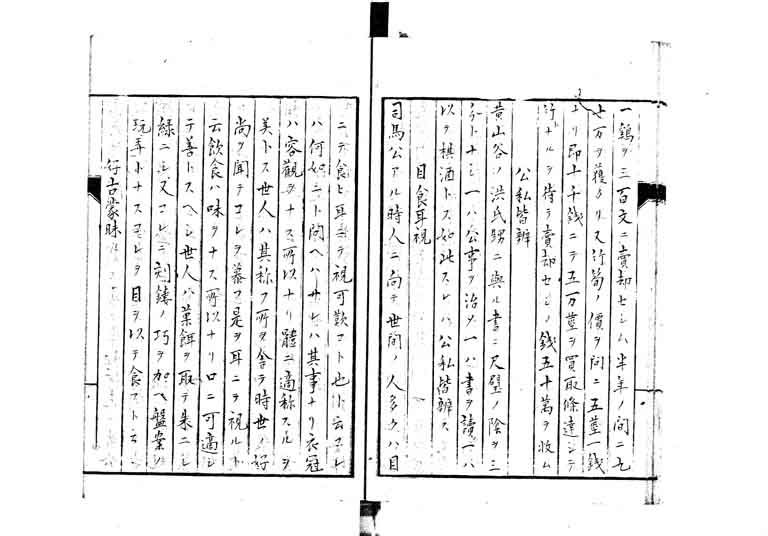 一鷄ヲ三百文ニ賣却セシム半年ノ間ニ九
七万ヲ獲タリ又竹筍ノ價ヲ問ニ五莖一錢
ナリ即十千錢ニテ五万莖ヲ買取條達シテ
竹トナルヲ待テ賣却セシメ錢五十萬ヲ收ム
公私皆辨
黄山谷ノ洪氏甥ニ與ル書ニ尺璧ノ陰ヲ三
分トナシ一ハ公事ヲ治メ一ハ書ヲ讀一ハ
以テ棋酒トス如此スレハ公私皆辨ス
目食耳視
司馬公アル時人ニ向テ世間ノ人多クハ目
ニテ食ヒ耳ニテ視可歎コト也ト云コレ
ハ何如ニト問ヘハサレハ其事ナリ衣冠
ハ容觀ヲナス所以ナリ體ニ適称スルヲ
美トス世人ハ其称フ所ヲ舎テ時世ノ好
尚ヲ聞テコレヲ慕フ是ヲ耳ニテ視ルト
云飲食ハ味ヲナス所以ナリ口ニ可適シ
テ善トスヘシ世人ハ菓餌ヲ取テ朱ニシ
緑ニシ又コレニ刻鏤ノ巧ヲ加ヘ盤案ノ
玩弄トナスコレヲ目ヲ以テ食フト云
蒙昧